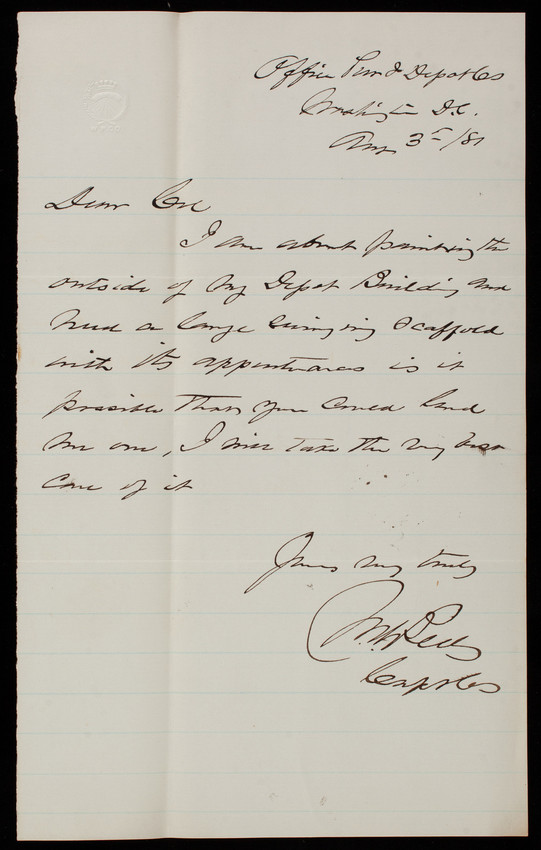 Office Pur & Depot CS
Washington D.C.
Aug 3rd /81
Dear Col
I am about painting the
outside of my Depot Building and
need a large swinging scaffold
with its appurtenances is it
possible that you could lend
me one, I will take the very best
care of it
Yours very truly
Capt CS